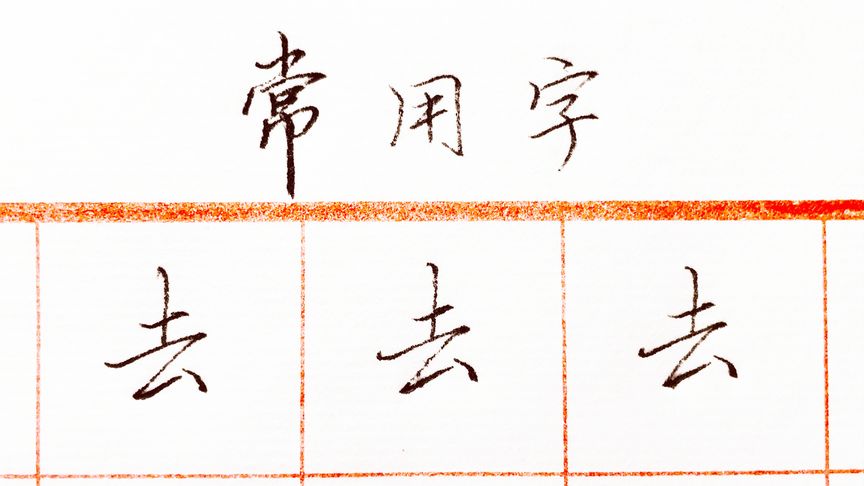 常用字
去 去 去